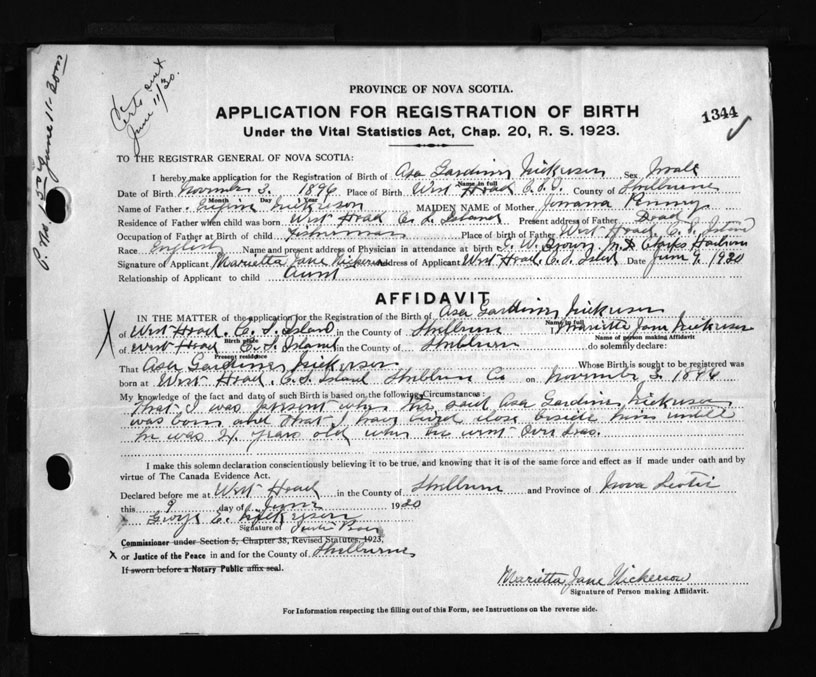 Certs sent
June 11/30.
June 11-
PROVINCE OF NOVA SCOTIA.
APPLICATION FOR REGISTRATION OF BIRTH
1344
Under the Vital Statistics Act, Chap. 20, R. S. 1923.
TO THE REGISTRAR GENERAL OF NOVA SCOTIA:
I hereby make application for the Registration of Birth of Asa Gardiner Nickerson Sex Male
Name in full
Date of Birth November 3. 1896 Place of Birth West Head C.S.I. County of Shelburne
Month Day Year
Name of Father Nickerson MAIDEN NAME of Mother Penny
Residence of Father when child was born West Head C. S. Island Present address of Father Dead
Occupation of Father at Birth of child Fisherman Place of birth of Father West Head C. S. Island
Race English Name and present address of Physician in attendance at birth I. W. Brown, M.D. Clarks Harbour
Signature of Applicant Marietta Jane Nickerson Address of Applicant West Head. C. S. Island Date June 9, 1930
Relationship of Applicant to child Aunt
AFFIDAVIT
IN THE MATTER of the application for the Registration of the Birth of Asa Gardiner Nickerson
Name in full
X of West Head, C. S. Island in the County of Shelburne Marietta Jane Nickerson
Birth place Name of person making Affidavit
of West Head C. S. Island in the County of Shelburne do solemnly declare:
Present residence
That Asa Gardiner Nickerson Whose Birth is sought to be registered was
born at West Head. C. S. Island Shelburne Co on November 3 1896
My knowledge of the fact and date of such Birth is based on the following Circumstances:
That I was present when the said Asa Gardiner Nickerson
was born and that I have lived close beside him until
he was 21 years old when he went Over Seas.
I make this solemn declaration conscientiously believing it to be true, and knowing that it is of the same force and effect as if made under oath and by
virtue of The Canada Evidence Act.
Declared before me at West Head in the County of Shelburne and Province of Nova Scotia
this 9 day of June 1930
George E. Nickerson
Signature of Justice Peace
Commissioner under Section 5, Chapter 38, Revised Statutes, 1923,
X or Justice of the Peace in and for the County of Shelburne
If sworn before a Notary Public affix seal.
Marietta Jane Nickerson
Signature of Person making Affidavit.
For Information respecting the filling out of this Form, see Instructions on the reverse side.